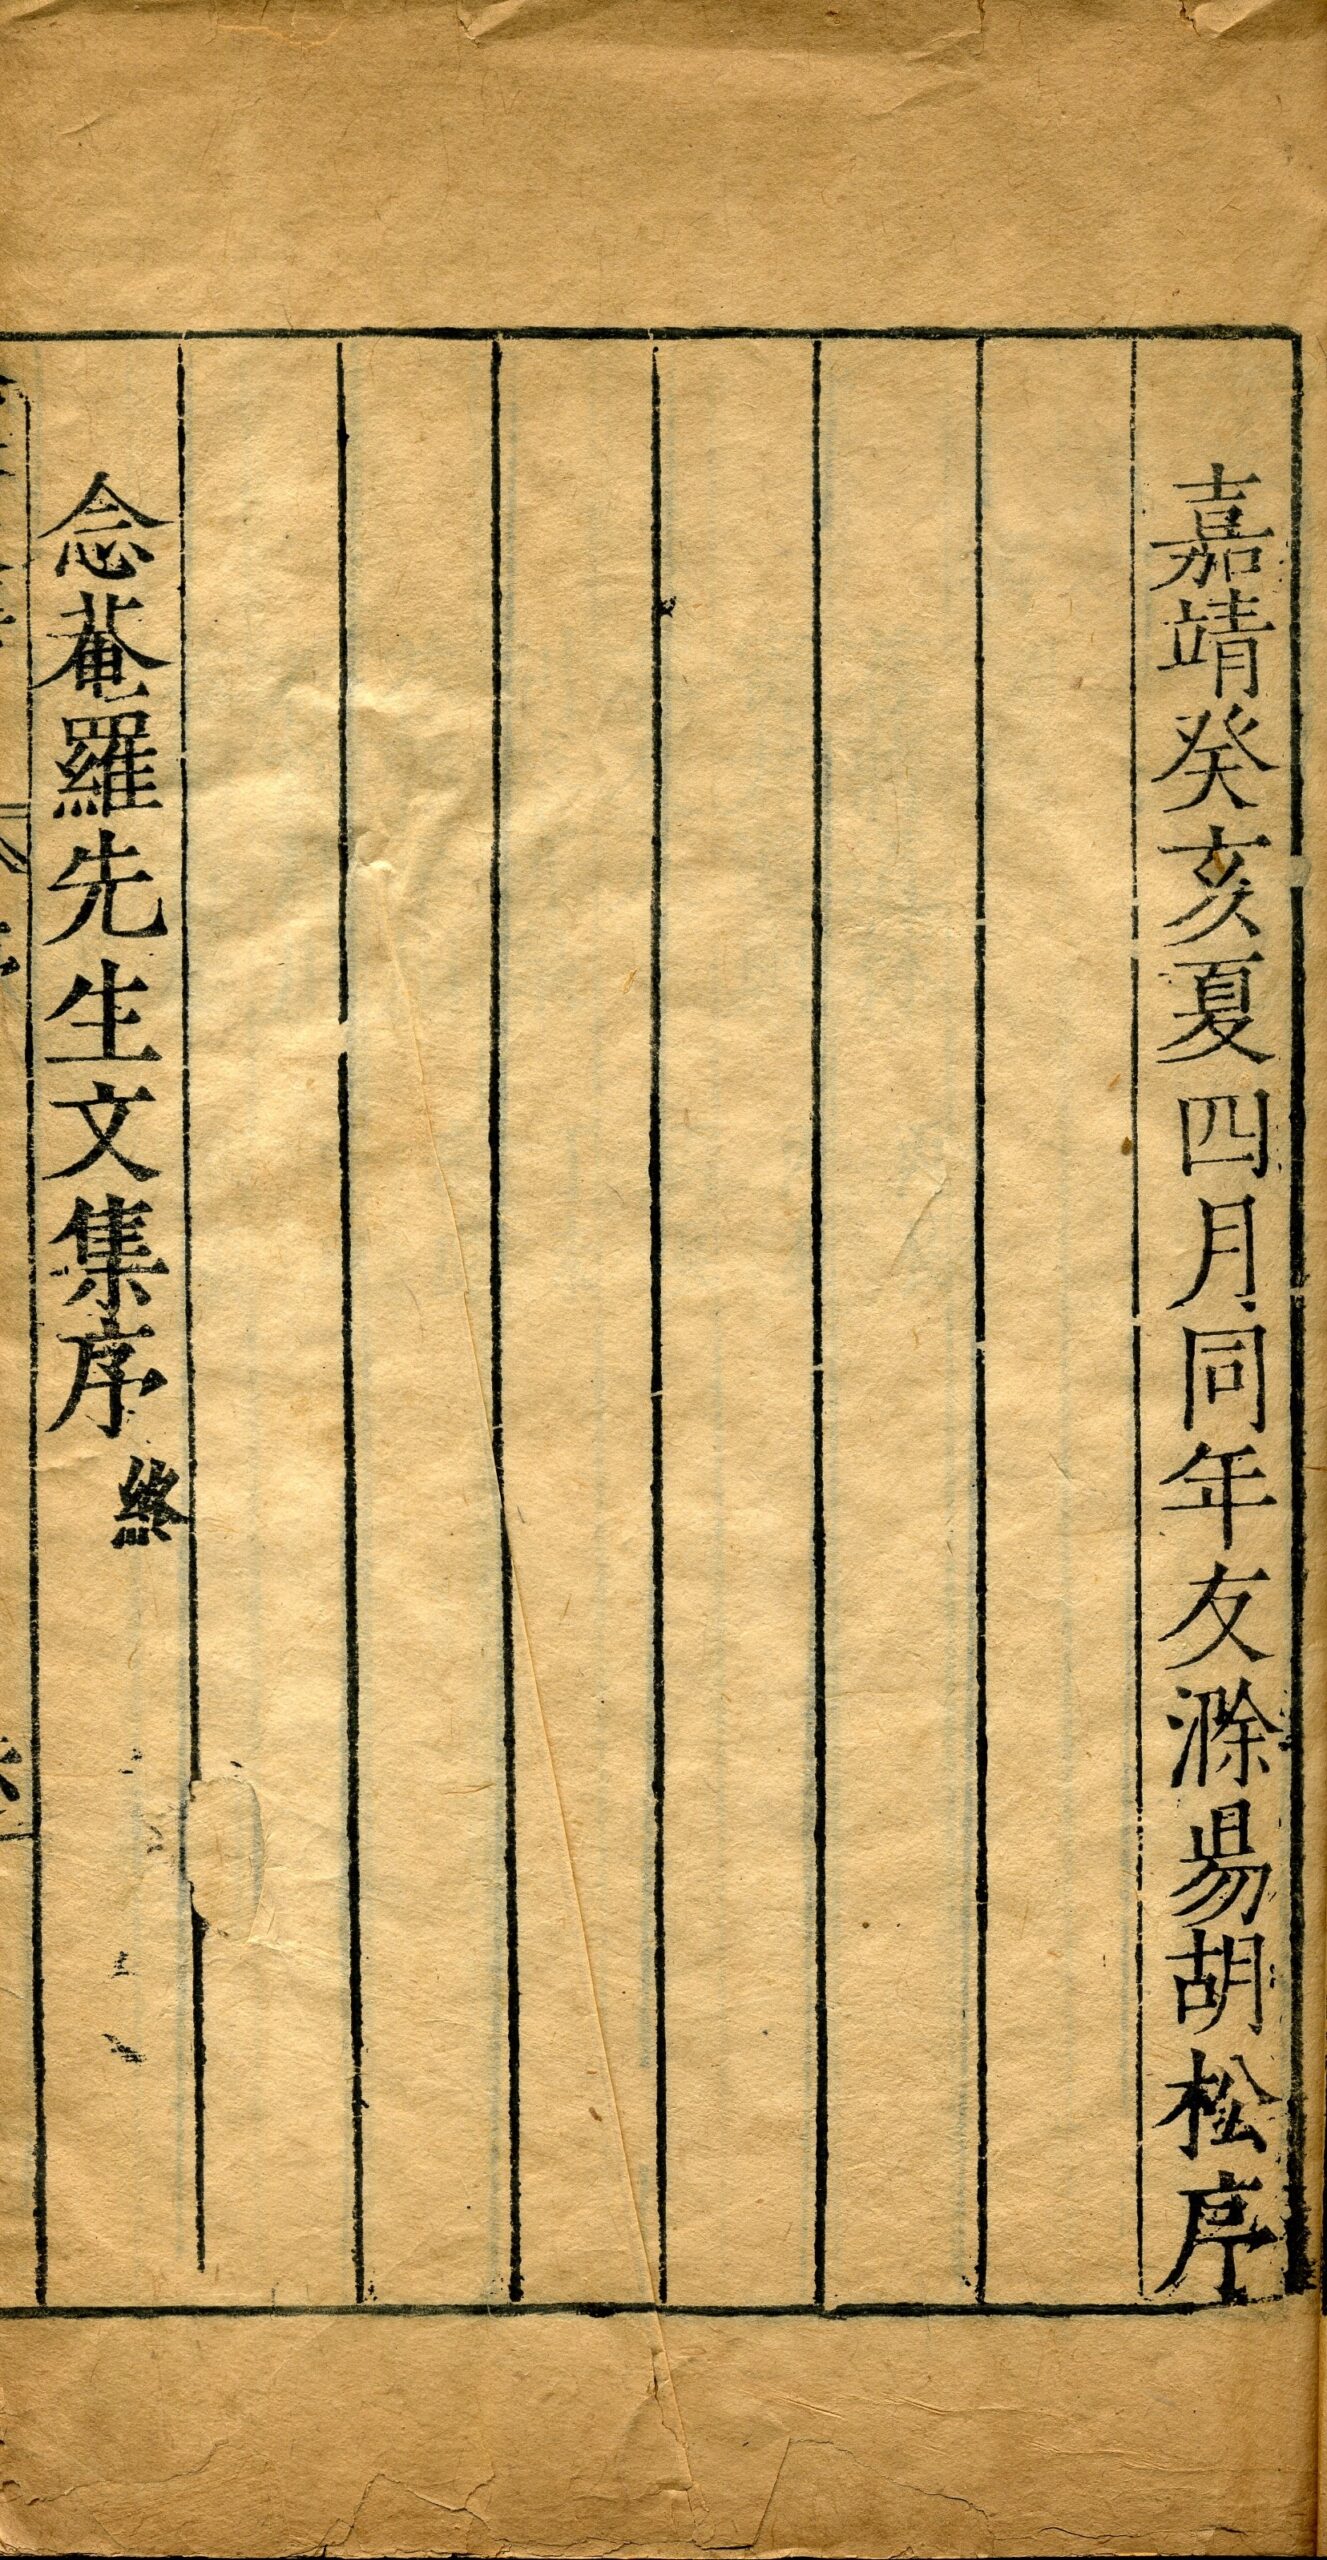 嘉靖癸亥夏四月同年友滁昜胡松序
念菴羅先生文集序終